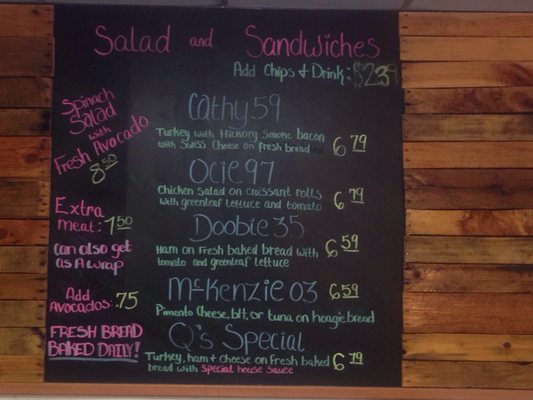 Salad and Sandwiches
Add Chips & Drink: $2.39
Spinach
Salad
with
Fresh Avocado
8.50
Extra
meat: 1.50
Can also get
as a wrap
Add
Avocados: .75
FRESH BREAD
BAKED DAILY!
Cathy 59
Turkey with Hickory Smoke bacon
with Swiss Cheese on fresh bread
6.79
Ocie 97
Chicken Salad on croissant rolls
with greenleaf lettuce and tomato
6.79
Doobie 35
Ham on Fresh baked bread with
tomato and greenleaf lettuce
6.59
McKenzie 03 6.59
Pimento Cheese, blt, or tuna on hoagie bread
Q's Special
Turkey, ham & cheese on Fresh baked
bread with Special house sauce
6.79